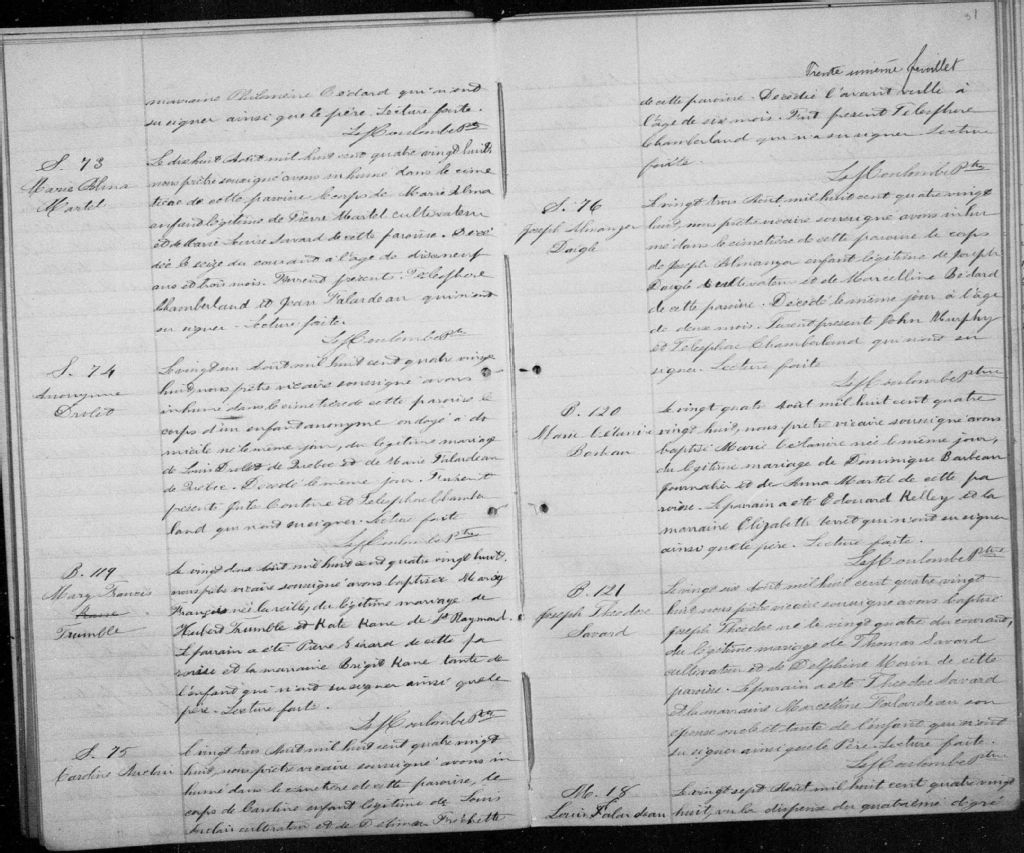 marraine Philomène Bédard qui n'ont
su signer ainsi que le père. Lecture faite.
Ls H Coulombe Ptre
S. 73
Marie Alma
Martel
Le dix huit Août mil huit cent quatre vingt huit,
nous prêtre soussigné avons inhumé dans le cime
tière de cette paroisse le corps de Marie Alma
enfant légitime de Pierre Martel cultivateur
et de Marie Louise Savard de cette paroisse. Décé
dée le seize du courant à l'âge de dixneuf
ans et trois mois. Furent présents Télesphore
Chamberland et Jean Falardeau qui n'ont
su signer. Lecture faite.
Ls H Coulombe Ptre
S. 74
Anonyme
Drolet
Le vingt un Août mil huit cent quatre vingt
huit, nous prêtre vicaire soussigné avons
inhumé dans le cimetière de cette paroisse le
corps d'un enfant anonyme ondoyé à do
micile né le même jour, du légitime mariage
de Louis Drolet de Québec et de Marie Falardeau
de Québec. Décédé le même jour. Furent
présents Jules Couture et Telesphore Chamber
land qui n'ont su signer. Lecture faite
Ls H Coulombe Ptre
B. 119
Mary Francis
Trumble
Le vingt deux Août mil huit cent quatre vingt huit,
nous prêtre vicaire soussigné avons baptisé Mary
Français née la veille, du légitime mariage de
Hubert Trumble et Kate Kane de St Raymond.
Le parrain a été Pierre Girard de cette pa
roisse et la marraine Brigit Kane tante de
l'enfant qui n'ont su signer ainsi que le
père. Lecture faite.
Ls H Coulombe Ptre
S. 75
Caroline Auclair
Le vingt trois Août mil huit cent quatre vingt
huit, nous prêtre vicaire soussigné avons in
humé dans le cimetière de cette paroisse, le
corps de Caroline enfant légitime de Louis
Auclair cultivateur et de Delima Frechette
31
Trente unième feuillet
de cette paroisse. Décédée l'avant veille à
l'âge de six mois. Fut présent Telesphore
Chamberland qui n'a su signer Lecture
faite.
Ls H Coulombe Ptre
S. 76
Joseph Almanzor
Daigle
Le vingt trois Août mil huit cent quatre vingt
huit, nous prêtre vicaire soussigné avons inhu
mé dans le cimetière de cette paroisse le corps
de Joseph Almanzor enfant légitime de Joseph
Daigle cultivateur et de Marcelline Bédard
de cette paroisse. Décédé le même jour à l'âge
de deux mois. Furent présents John Murphy
et Telesphore Chamberland qui n'ont su
signer. Lecture faite
Ls H Coulombe Ptre
B. 120
Marie Célanire
Barbeau
Le vingt quatre Août mil huit cent quatre
vingt huit, nous prêtre vicaire soussigné avons
baptisé Marie Célanire née le même jour,
du légitime mariage de Dominique Barbeau
journalier et de Anna Martel de cette pa
roisse. Le parrain a été Edouard Kelley et la
marraine Elizabeth qui n'ont su signer
ainsi que le père. Lecture faite.
Ls H Coulombe Ptre
B. 121
Joseph Théodore
Savard
Le vingt six Août mil huit cent quatre vingt
huit nous prêtre vicaire soussigné avons baptisé
Joseph Théodore né le vingt quatre du courant,
du légitime mariage de Thomas Savard
cultivateur et de Delphine Morin de cette
paroisse. Le parrain a été Théodore Savard
et la marraine Marcelline Falardeau son
épouse oncle et tante de l'enfant qui n'ont
su signer ainsi que le Père. Lecture faite.
Ls H Coulombe Ptre
M. 18
Louis Falardeau
Le vingt sept Août mil huit cent quatre vingt
huit, vu la dispense du quatrième dégré